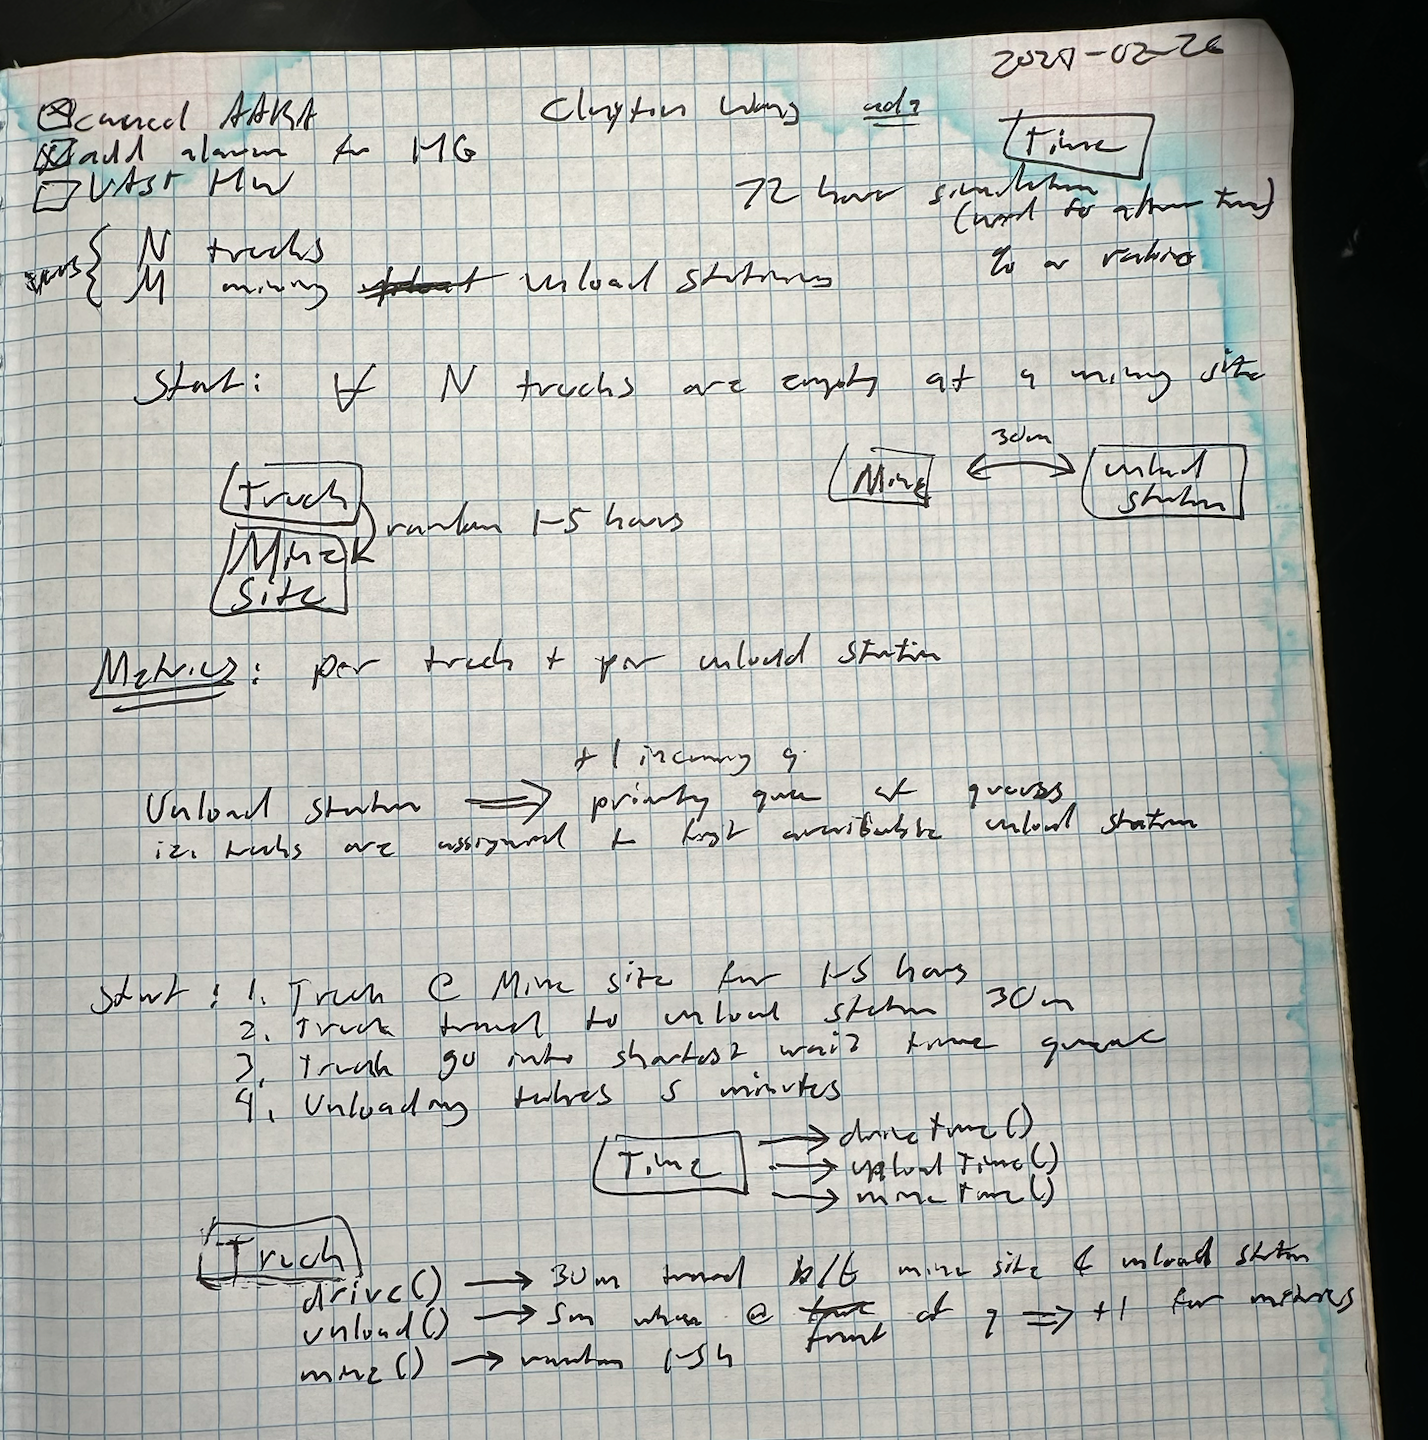 2024-02-26
AAKA
Clayton Wang
add alarm for MG
Time
VAST HW
72 hour simulation
N trucks
% or ratio
M mining unload stations
Start: ∀ N trucks are empty at a mining site
30m
Mine
unload
station
Truck
random 1-5 hours
Mine
Site
Metrics: per truck + per unload station
+1 incoming q
Unload station ⇒ priority queue of queues
ie. trucks are assigned to first available unload station
Start: 1. Truck @ Mine site for 1-5 hours
2. Truck travel to unload station 30m
3. Truck go into shortest wait time queue
4. Unloading takes 5 minutes
Time
→ drive time()
→ upload Time()
→ mine time()
Truck
drive() → 30m travel b/t mine site & unload station
unload() → 5m when @ front of q ⇒ +1 for metrics
mine() → random 1-5h